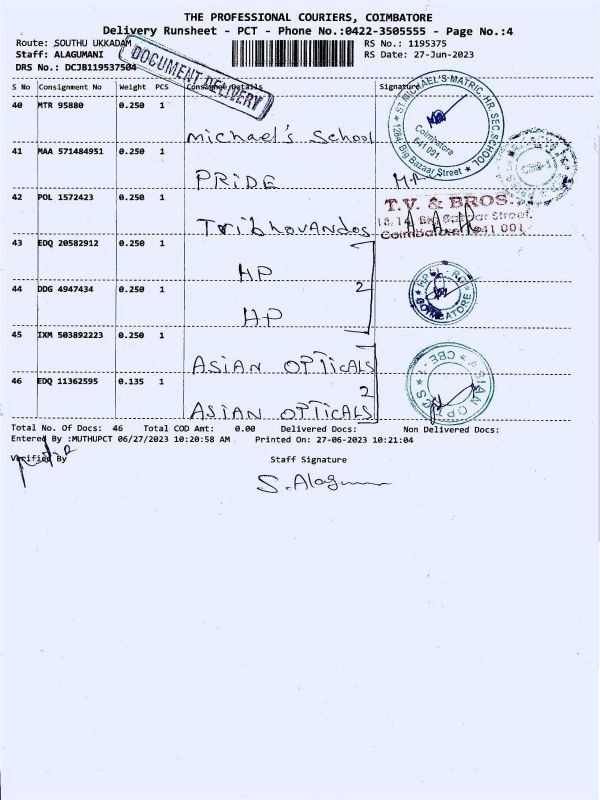 THE PROFESSIONAL COURIERS, COIMBATORE
Delivery Runsheet - PCT - Phone No.:0422-3505555 - Page No.:4
Route: SOUTHU UKKADAM
RS No.: 1195375
Staff: ALAGUMANI
RS Date: 27-Jun-2023
DRS No.: DCJB119537504
DOCUMENT DELIVERY
S No Consignment No Weight PCS Consignee Details Signature
40 MTR 95880 0.250 1
Michael's School
ST. MICHAEL'S MATRIC. HR. SEC. SCHOOL
Coimbatore
641 001
★ 1294 Big Bazaar Street ★
41 MAA 571484951 0.250 1
PRIDE
42 POL 1572423 0.250 1
Tribhovandos
T.V. & BROS.
18, 14, Big Bazaar Street,
Coimbatore - 641 001
43 EDQ 20582912 0.250 1
HP
44 DDG 4947434 0.250 1
HP
2
COIMBATORE
45 IXM 503892223 0.250 1
ASIAN OPTICALS
46 EDQ 11362595 0.135 1
2
ASIAN OPTICALS
Total No. Of Docs: 46 Total COD Amt: 0.00 Delivered Docs: Non Delivered Docs:
Entered By :MUTHUPCT 06/27/2023 10:20:58 AM Printed On: 27-06-2023 10:21:04
Verified By Staff Signature
S. Alagu